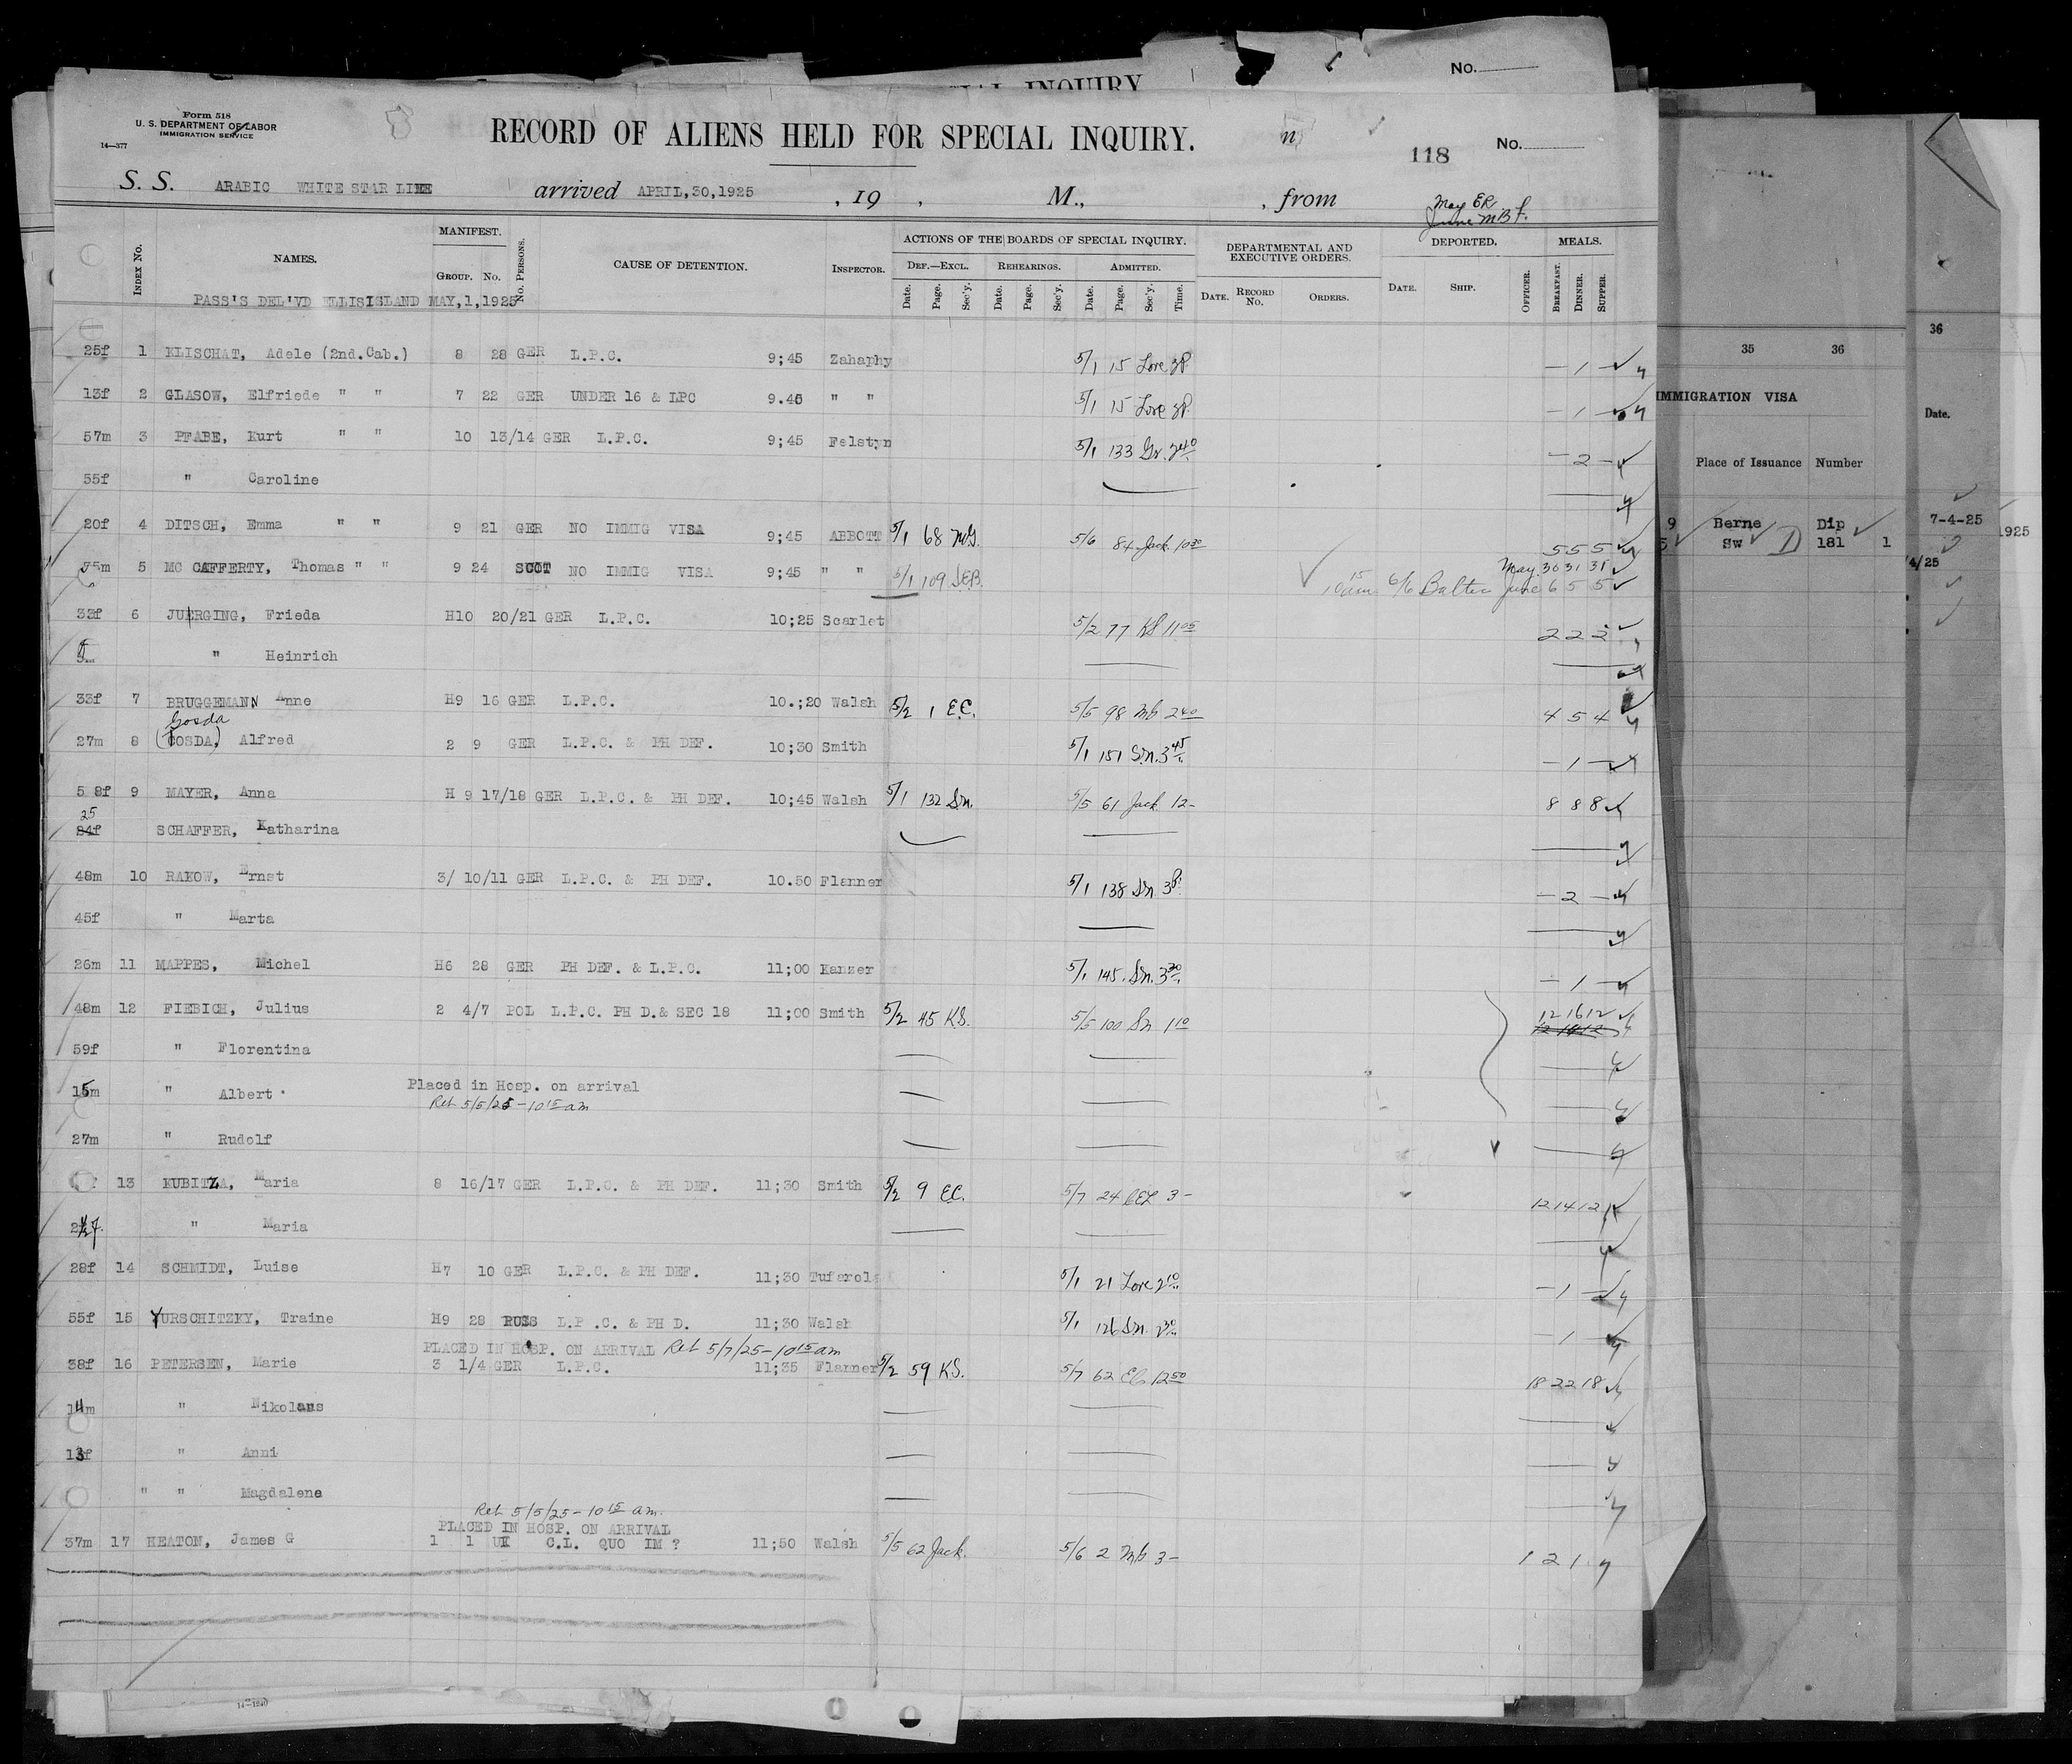 No.
Form 518
U. S. DEPARTMENT OF LABOR
IMMIGRATION SERVICE
14—377
RECORD OF ALIENS HELD FOR SPECIAL INQUIRY.
118 No.
S. S. ARABIC WHITE STAR LINE arrived APRIL,30,1925 , 19 , M., , from
May ER
June MBF.
INDEX No. NAMES. MANIFEST. GROUP. No. No. PERSONS. CAUSE OF DETENTION. INSPECTOR. ACTIONS OF THE BOARDS OF SPECIAL INQUIRY. DEF.—EXCL. Date. Page. Sec'y. REHEARINGS. Date. Page. Sec'y. ADMITTED. Date. Page. Sec'y. Time. DEPARTMENTAL AND EXECUTIVE ORDERS. DATE. RECORD No. ORDERS. DEPORTED. DATE. SHIP. OFFICER. MEALS. BREAKFAST. DINNER. SUPPER.
PASS'S DEL'VD ELLISISLAND MAY,1,1925
25f 1 KLISCHAT, Adele (2nd.Cab.) 8 28 GER L.P.C. 9;45 Zahaphy 5/1 15 Lore 3P. — 1 —
13f 2 GLASOW, Elfriede " " 7 22 GER UNDER 16 & LPC 9.45 " " 5/1 15 Lore 3P. — 1 —
57m 3 PFABE, Kurt " " 10 13/14 GER L.P.C. 9;45 Felstyn 5/1 133 Gr. 2 40 — 2 —
55f " Caroline
20f 4 DITSCH, Emma " " 9 21 GER NO IMMIG VISA 9;45 ABBOTT 5/1 68 McG. 5/6 84 Jack. 10 30 5 5 5
35m 5 MC CAFFERTY, Thomas " " 9 24 SCOT NO IMMIG VISA 9;45 " " 5/1 109 S.E.B. May 30 31 31
10 15 am 6/6 Baltic June 6 5 5
33f 6 JUERGING, Frieda H10 20/21 GER L.P.C. 10;25 Scarlet 5/2 77 KS 11 05 2 2 2
" Heinrich
33f 7 BRUGGEMANN Anne H9 16 GER L.P.C. 10.;20 Walsh 5/2 1 E.C. 5/5 98 Mb 2 40 4 5 4
Gosda
27m 8 (COSDA,) Alfred 2 9 GER L.P.C. & PH DEF. 10;30 Smith 5/1 151 Sn. 3 45 — 1 —
5 8f 9 MAYER, Anna H 9 17/18 GER L.P.C. & PH DEF. 10;45 Walsh 5/1 132 Sn. 5/5 61 Jack. 12- 8 8 8
25
24f SCHAFFER, Katharina
48m 10 RAKOW, Ernst 3/ 10/11 GER L.P.C. & PH DEF. 10.50 Flanner 5/1 138 Sn. 3P. — 2 —
45f " Marta
26m 11 MAPPES, Michel H6 28 GER PH DEF. & L.P.C. 11;00 Kanzer 5/1 145 Sn. 3 30 — 1 —
48m 12 FIEBICH, Julius 2 4/7 POL L.P.C. PH D.& SEC 18 11;00 Smith 5/2 45 KS. 5/5 100 Sn 1 10 12 16 12
59f " Florentina
15m " Albert Placed in Hosp. on arrival
Ret 5/5/25 – 10 15 am
27m " Rudolf
13 KUBITZA, Maria 8 16/17 GER L.P.C. & PH DEF. 11;30 Smith 5/2 9 E.C. 5/7 24 CEL 3 – 12 14 12
" Maria
28f 14 SCHMIDT, Luise H7 10 GER L.P.C. & PH DEF. 11;30 Tufarola 5/1 21 Lore 2 10 — 1 —
55f 15 YURSCHITZKY, Traine H9 28 RUSS L.P .C. & PH D. 11;30 Walsh 5/1 126 Sn. 2 30 — 1 —
PLACED IN HOSP. ON ARRIVAL Ret 5/7/25 – 10 15 am
38f 16 PETERSEN, Marie 3 1/4 GER L.P.C. 11;35 Flanner 5/2 59 KS. 5/7 62 12 50 18 22 18
14m " Nikolaus
13f " Anni
" " Magdalene
Ret 5/5/25 – 10 15 am.
PLACED IN HOSP. ON ARRIVAL
37m 17 HEATON, James G 1 1 UK C.L. QUO IM ? 11;50 Walsh 5/5 62 Jack. 5/6 2 Mb 3 – 1 2 1
35 36
IMMIGRATION VISA
Place of Issuance Number
9 Berne Dip
Sw D 181 1
36
Date.
7-4-25
1925
4/25